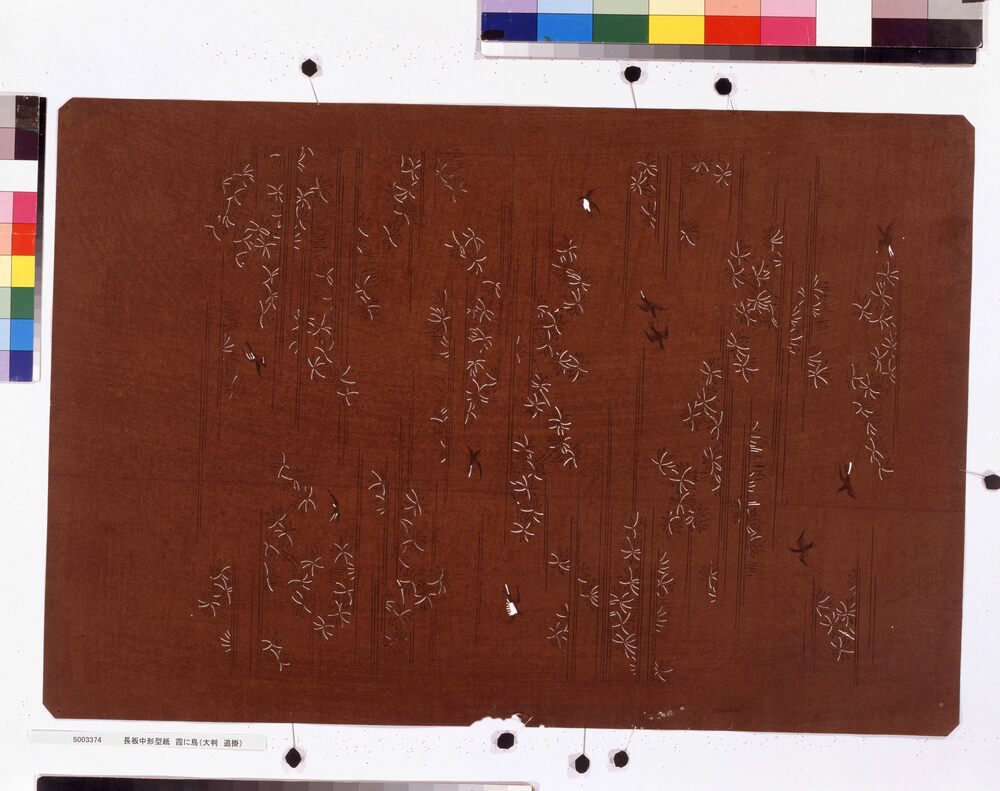 5003374 長板中形型紙 霞に鳥(大判 追掛)